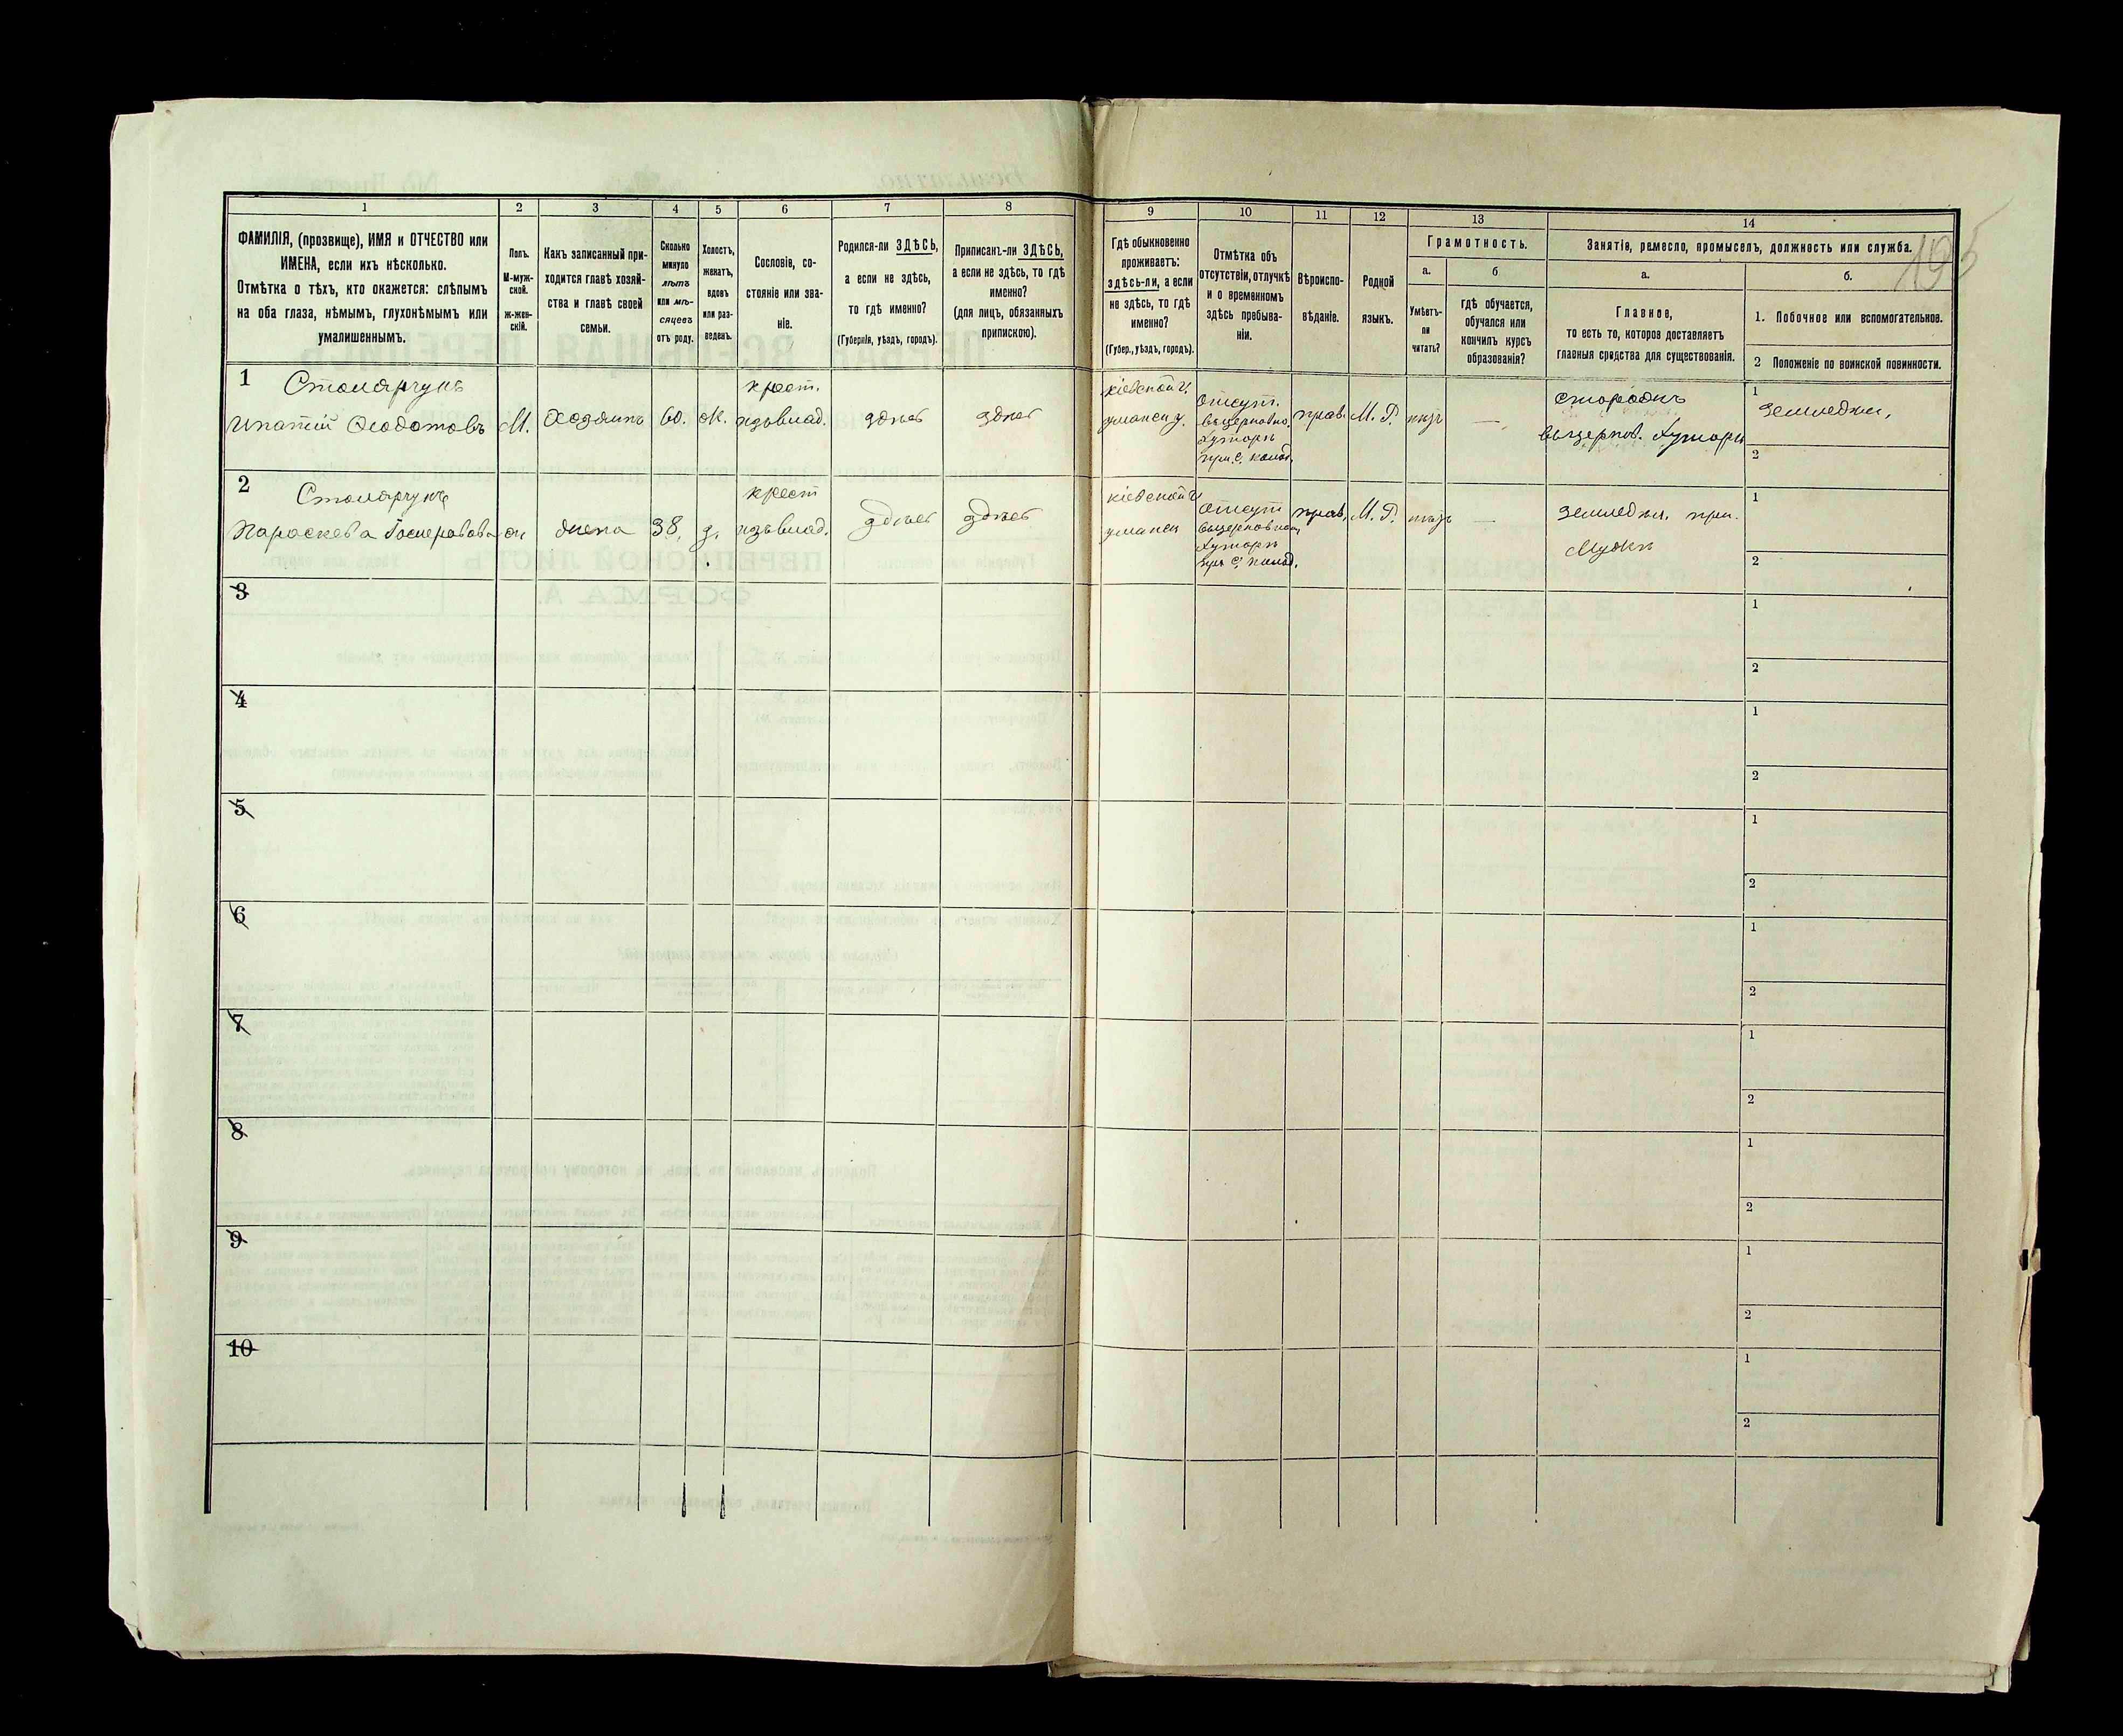 195
1
2
3
4
5
6
7
8
9
10
11
12
13
14
ФАМИЛІЯ, (прозвище), ИМЯ и ОТЧЕСТВО или
ИМЕНА, если ихъ нѣсколько.
Отмѣтка о тѣхъ, кто окажется: слѣпымъ
на оба глаза, нѣмымъ, глухонѣмымъ или
умалишеннымъ.
Полъ.
М-муж-
ской.
Ж-жен-
скій.
Какъ записанный при-
ходится главѣ хозяй-
ства и главѣ своей
семьи.
Сколько
минуло
лѣтъ
или мѣ-
сяцевъ
отъ роду.
Холостъ,
женатъ,
вдовъ
или раз-
веденъ.
Сословіе, со-
стояніе или зва-
ніе.
Родился-ли ЗДѢСЬ,
а если не здѣсь,
то гдѣ именно?
(Губернія, уѣздъ, городъ).
Приписанъ-ли ЗДѢСЬ,
а если не здѣсь, то гдѣ
именно?
(для лицъ, обязанныхъ
припискою).
Гдѣ обыкновенно
проживаетъ:
здѣсь-ли, а если
не здѣсь, то гдѣ
именно?
(Губер., уѣздъ, городъ).
Отмѣтка объ
отсутствіи, отлучкѣ
и о временномъ
здѣсь пребыва-
ніи.
Вѣроиспо-
вѣданіе.
Родной
языкъ.
Грамотность.
а.
б
Умѣетъ-
ли
читать?
гдѣ обучается,
обучался или
кончилъ курсъ
образованія?
Занятіе, ремесло, промыселъ, должность или служба.
а.
б.
Главное,
то есть то, которое доставляетъ
главныя средства для существованія.
1. Побочное или вспомогательное.
2 Положеніе по воинской повинности.
1
Столярчукъ
Ипатій Ѳеодотовъ
М.
Хозяинъ
60.
ж.
крест.
изъ влад.
здѣсь
здѣсь
кіевской г.
уманск у.
отсут.
хуторъ
при с.
прав.
М. Р.
нѣтъ
—
сторожъ
хуторъ
1
земледѣл.
2
2
Столярчукъ
Параскева
ж
жена
38.
з.
крест
изъ влад.
здѣсь
здѣсь
кіевской г
уманск
отсут
хуторъ
при с.
прав.
М. Р.
нѣтъ
—
земледѣл. при.
мужѣ
1
2
3
1
2
4
1
2
5
1
2
6
1
2
7
1
2
8
1
2
9
1
2
10
1
2